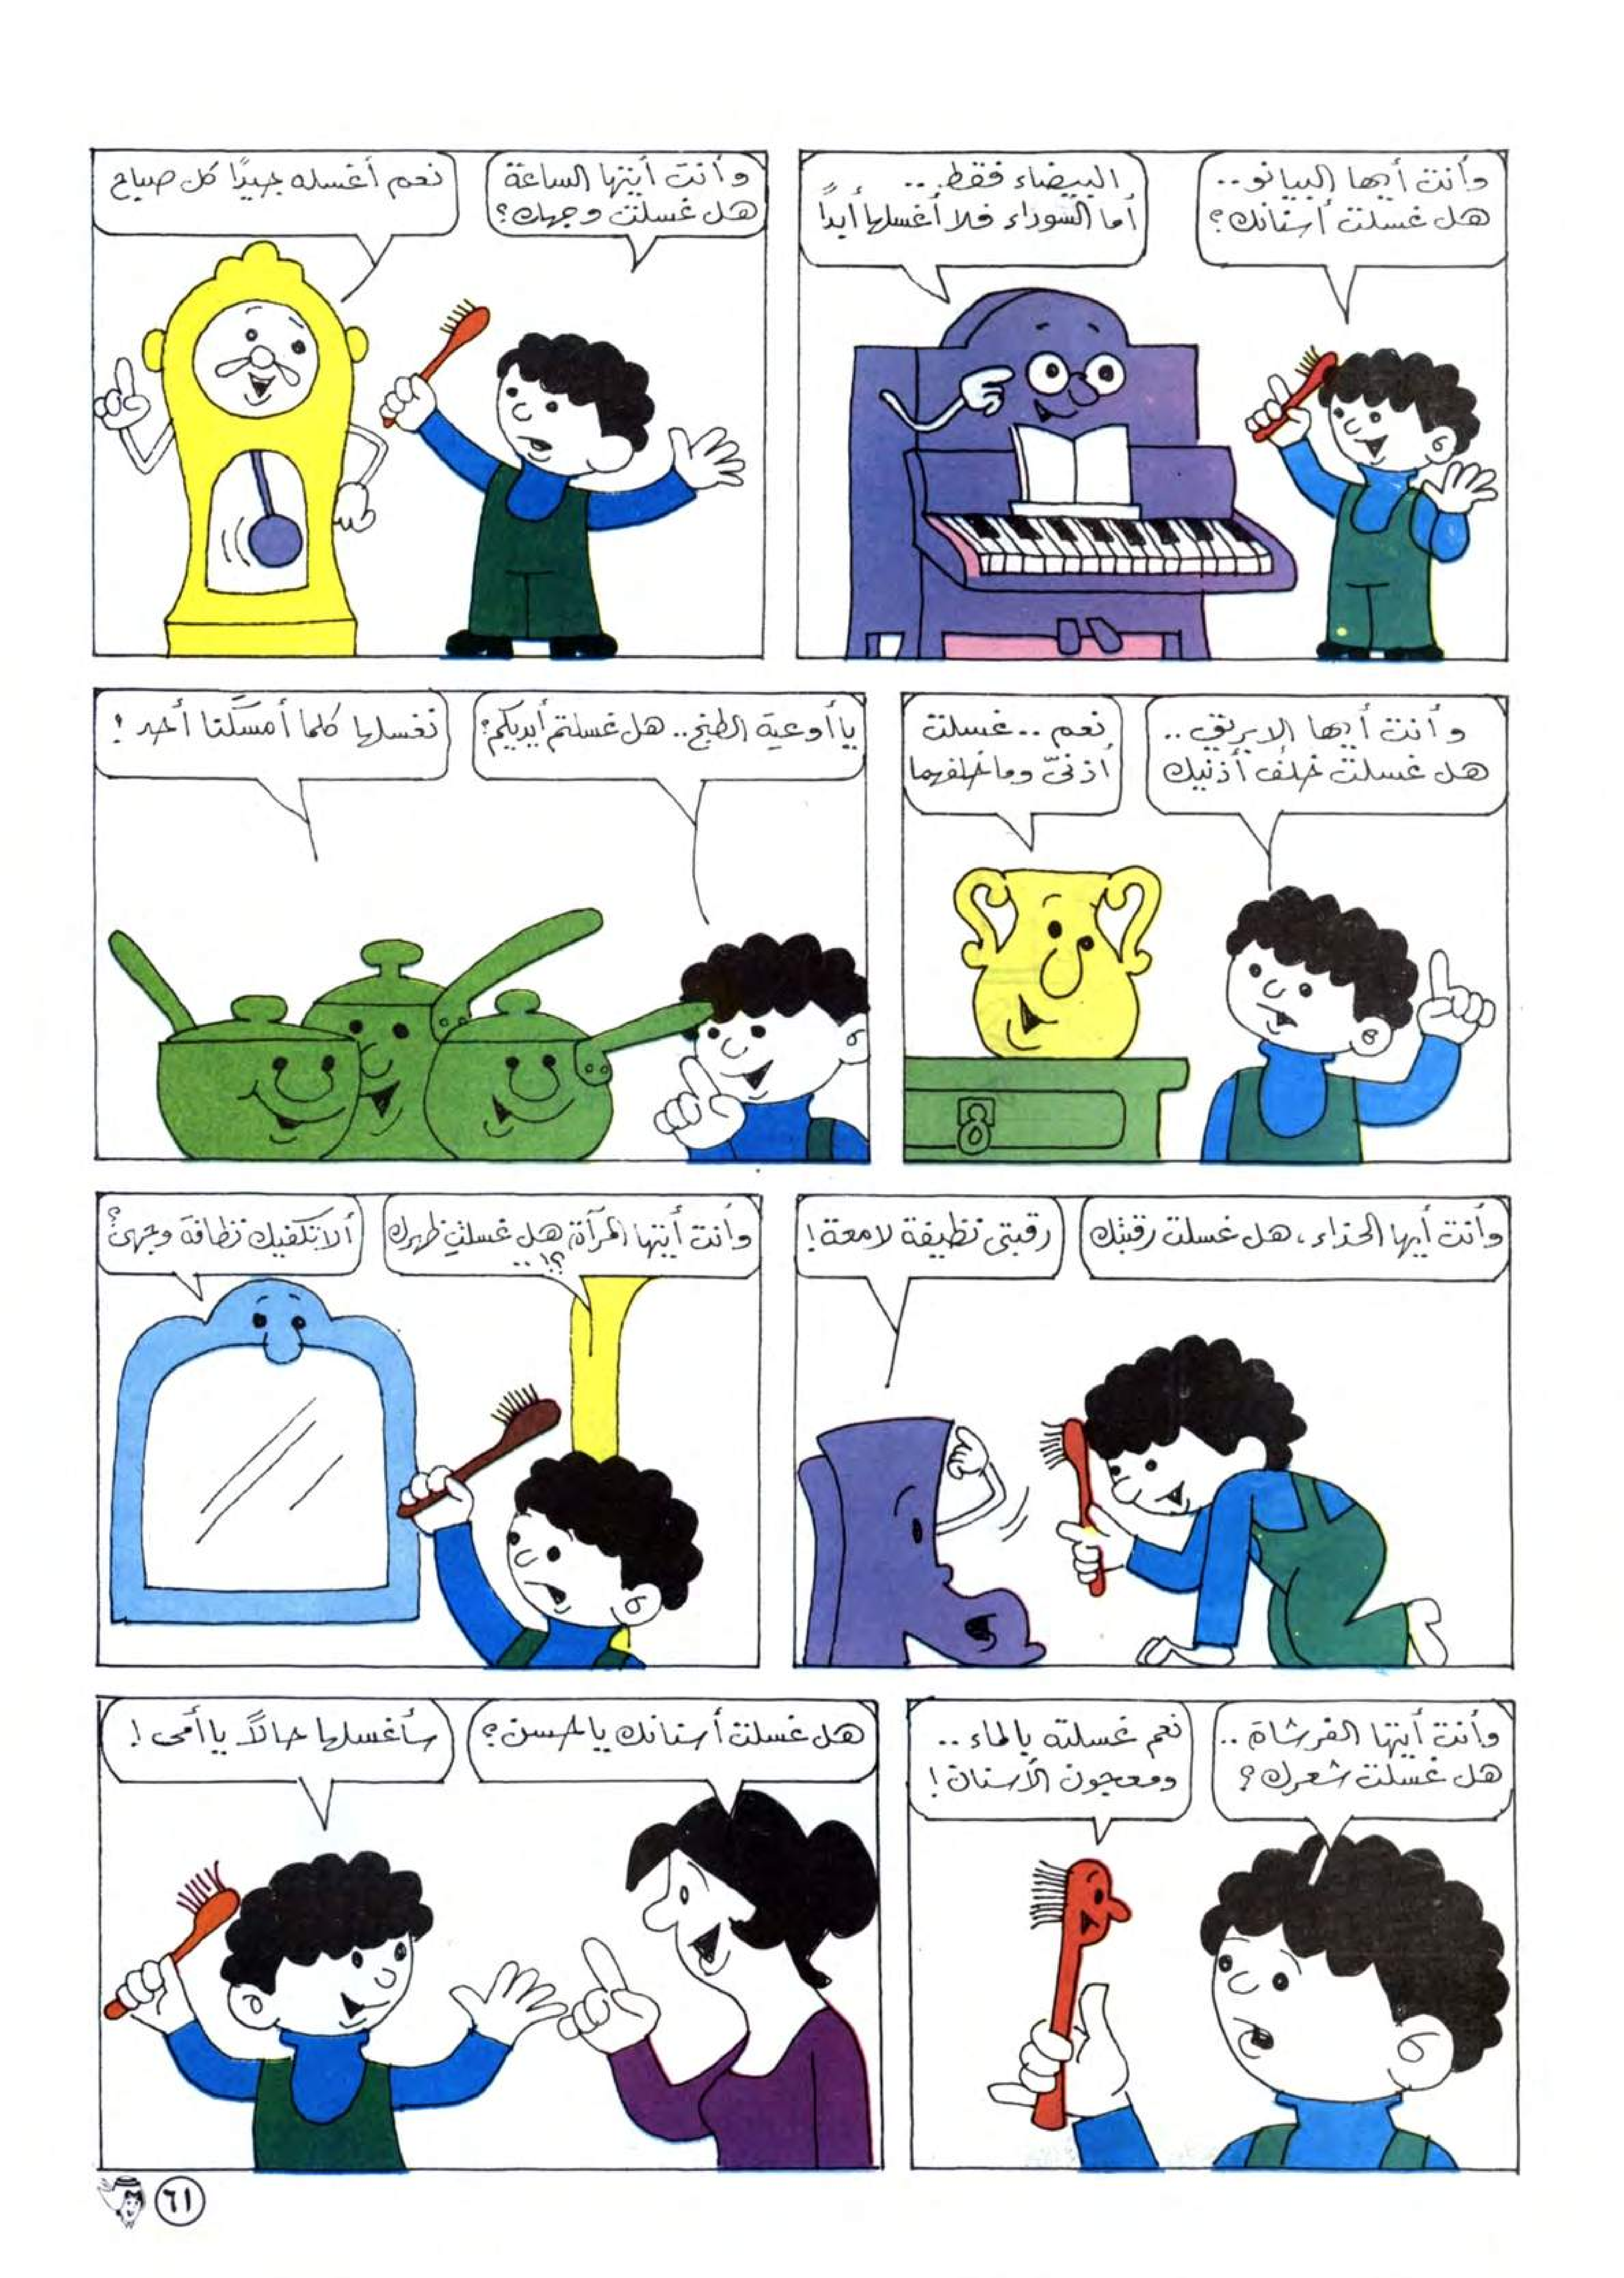 وأنت أيها البيانو..
هل غسلت أسنانك؟
البيضاء فقط..
أما السوداء فلا أغسلها أبداً
وأنت أيتها الساعة
هل غسلت وجهك؟
نعم أغسله جيدًا كل صباح
وأنت أيها الابريق..
هل غسلت خلف أذنيك
نعم.. غسلت
أذنيّ وما خلفهما
يا أوعية الطبخ.. هل غسلتم أيديكم؟
نغسلها كلما أمسكنا أحد!
وأنت أيها الحذاء، هل غسلت رقبتك
رقبتي نظيفة لامعة!
وأنت أيتها المرآة هل غسلتِ ظهرك
؟!..
ألا تكفيك نظافة وجهي؟
وأنت أيتها الفرشاة..
هل غسلت شعرك؟
نعم غسلته بالماء..
ومعجون الأسنان!
هل غسلت أسنانك يا حسن؟
سأغسلها حالاً يا أمي!
٦١